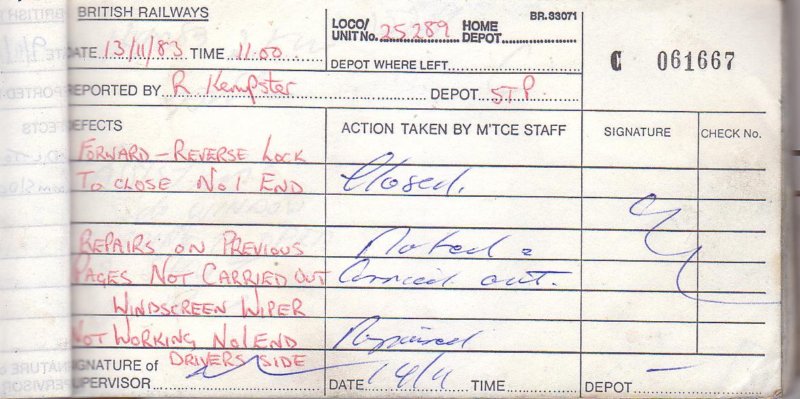 BRITISH RAILWAYS
BR.33071
LOCO/ UNIT No. 25289 HOME DEPOT
DATE 13/11/83 TIME 11.00
DEPOT WHERE LEFT
C 061667
REPORTED BY R Kempster DEPOT STP.
DEFECTS ACTION TAKEN BY M'TCE STAFF SIGNATURE CHECK No.
FORWARD - REVERSE LOCK
TO CLOSE No 1 END Closed.
REPAIRS ON PREVIOUS Noted &
PAGES NOT CARRIED OUT Carried out.
WINDSCREEN WIPER
NOT WORKING No1 END Repaired
DRIVERS SIDE
SIGNATURE of SUPERVISOR DATE 14/11 TIME DEPOT —